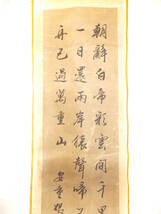 朝辭白帝彩雲間千里
一日還兩岸猿聲啼
舟已過萬重山